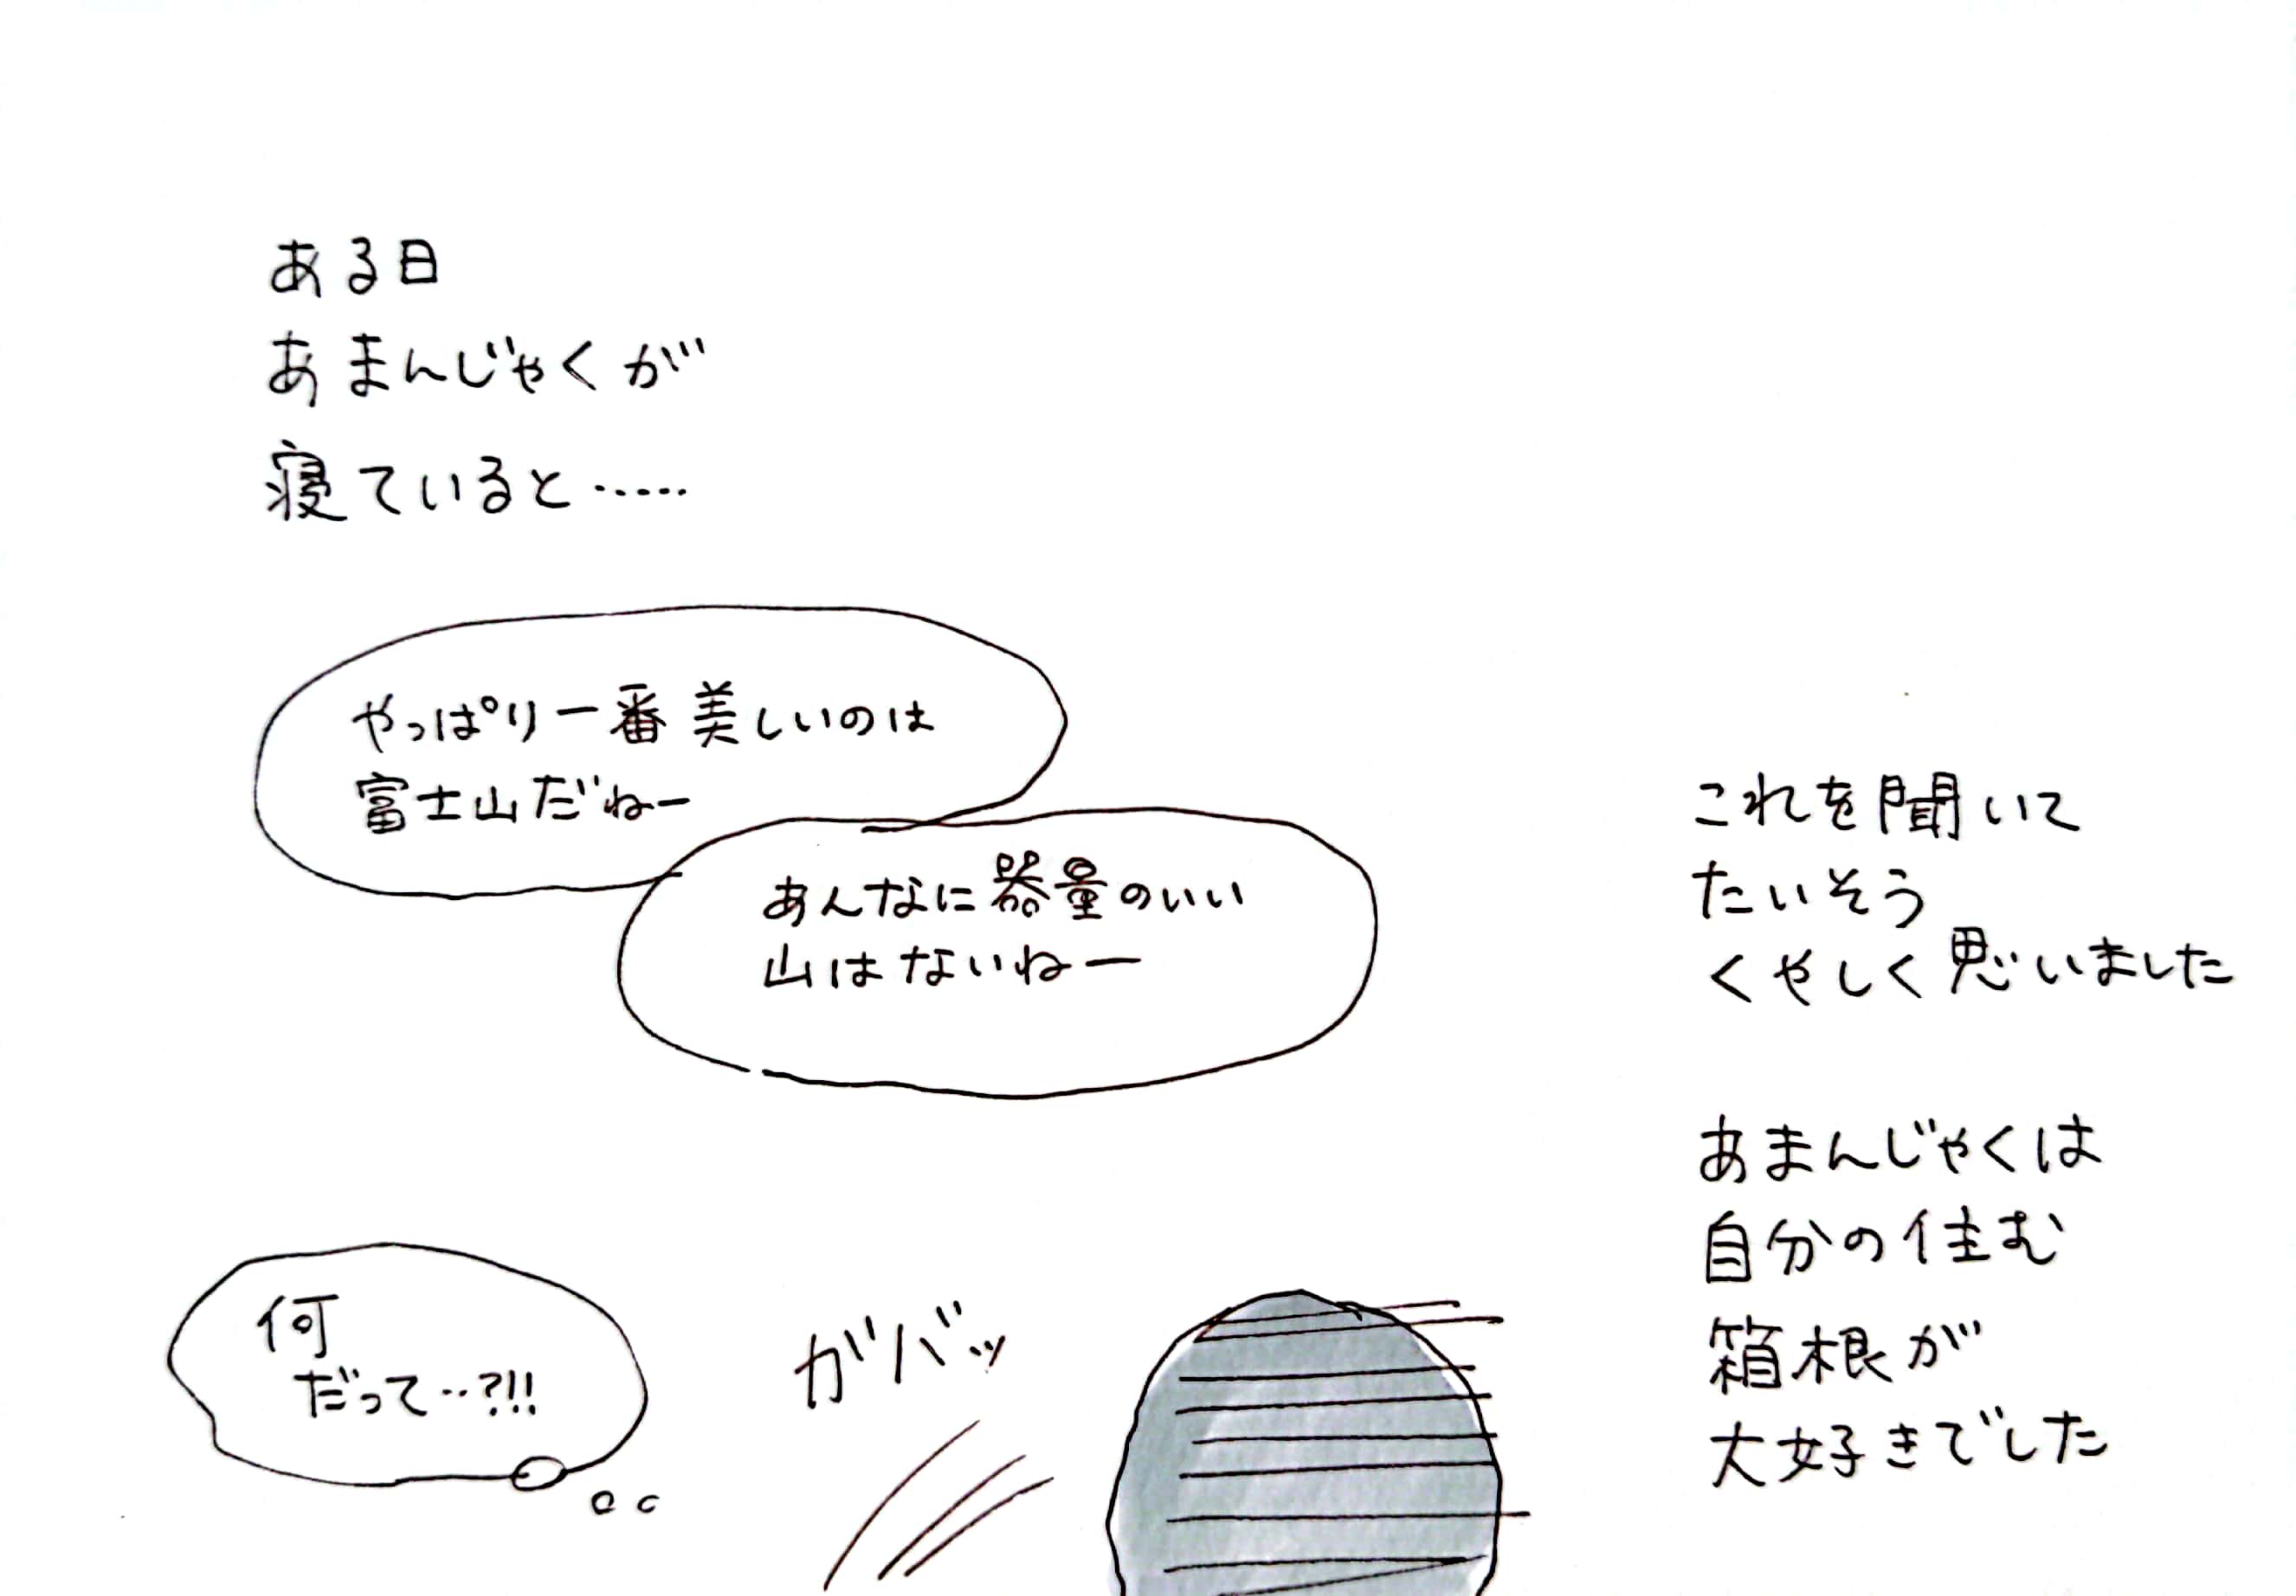 ある日
あまんじゃくが
寝ていると……
やっぱり一番美しいのは
富士山だねー
あんなに器量のいい
山はないねー
何
だって…?!!
ガバッ
これを聞いて
たいそう
くやしく思いました
あまんじゃくは
自分の住む
箱根が
大好きでした